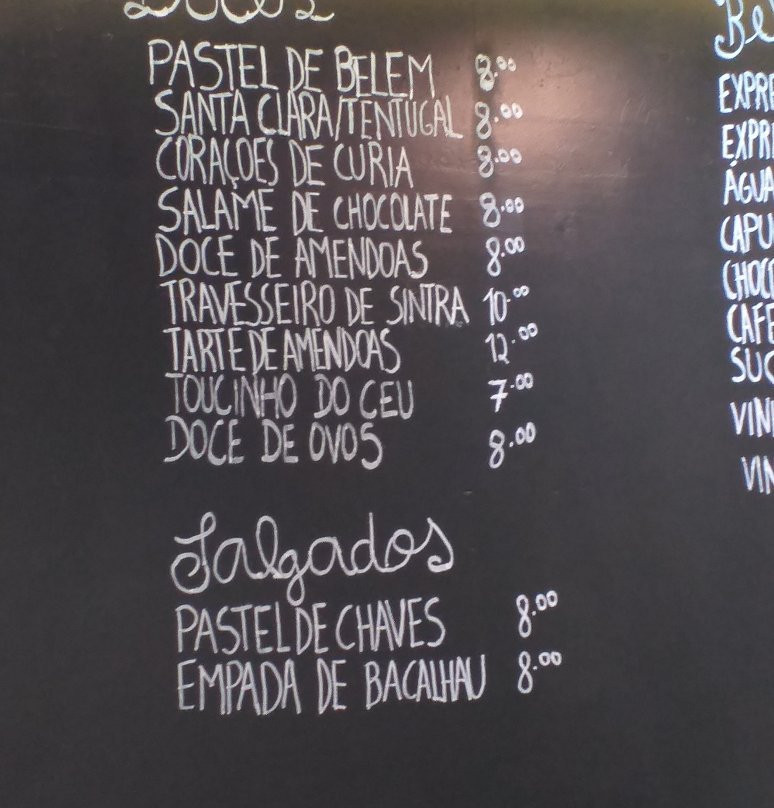 Doces
PASTEL DE BELEM 8.00
SANTA CLARA/TENTUGAL 8.00
CORAÇOES DE CURIA 8.00
SALAME DE CHOCOLATE 8.00
DOCE DE AMENDOAS 8.00
TRAVESSEIRO DE SINTRA 10.00
TARTE DE AMENDOAS 12.00
TOUCINHO DO CEU 7.00
DOCE DE OVOS 8.00
Salgados
PASTEL DE CHAVES 8.00
EMPADA DE BACALHAU 8.00
ÁGUA